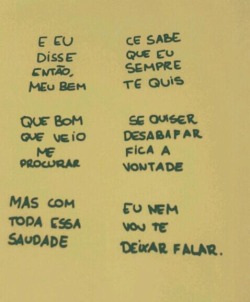 E EU
DISSE
ENTÃO,
MEU BEM
CE SABE
QUE EU
SEMPRE
TE QUIS
QUE BOM
QUE VEIO
ME
PROCURAR
SE QUISER
DESABAFAR
FICA A
VONTADE
MAS COM
TODA ESSA
SAUDADE
EU NEM
VOU TE
DEIXAR FALAR.